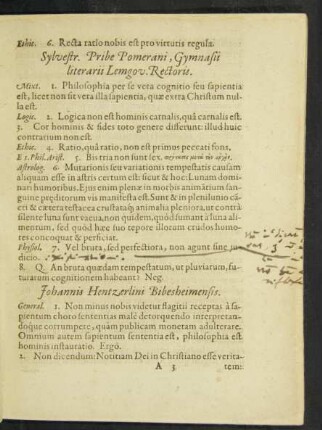 Ethic. 6. Recta ratio nobis est pro virtutis regula.
Sylvestr. Pribe Pomerani, Gymnasii
literarii Lemgov. Rectoris.
Mixt. 1. Philosophia per se vera cognitio seu sapientia
est, licet non sit vera illa sapientia, quæ extra Christum nul-
la est.
Logic. 2. Logica non est hominis carnalis, quà carnalis est.
3. Cor hominis & fides toto genere differunt: illud huic
contrarium non est.
Ethic. 4. Ratio, quà ratio, non est primus peccati fons.
E 1. Phil. Arist. 5. Bis tria non sunt sex.
Astrolog. 6. Mutationis seu variationis tempestatis causam
aliquam esse in astris certum est: sicut & hoc: Lunam domi-
nari humoribus. Ejus enim plenæ in morbis animátium san-
guine preditorum vis manifesta est. Sunt & in plenilunio cã-
cri & cætera testacea crustataq; animalia pleniora, ut contrà
silente luna sunt vacua, non quidem, quòd fumant à luna ali-
mentum, sed quòd hæc suo tepore illorum crudos humo-
res concoquat & perficiat.
Physiol. 7. Vel bruta, sed perfectiora, non agunt sine ju-
dicio.
8. Q. An bruta quædam tempestatum, ut pluviarum, fu-
turarum cognitionem habeant? Neg.
Johannis Hentzerlini Bibesheimensis.
General. 1. Non minus nobis videtur flagitii receptas à sa-
pientum choro sententias malè detorquendo interpretan-
doque corrumpere, quàm publicam monetam adulterare.
Omnium autem sapientum sententia est, philosophia est
hominis instauratio. Ergò.
2. Non dicendum: Notitiam Dei in Christiano esse verita-
A 3 tem: